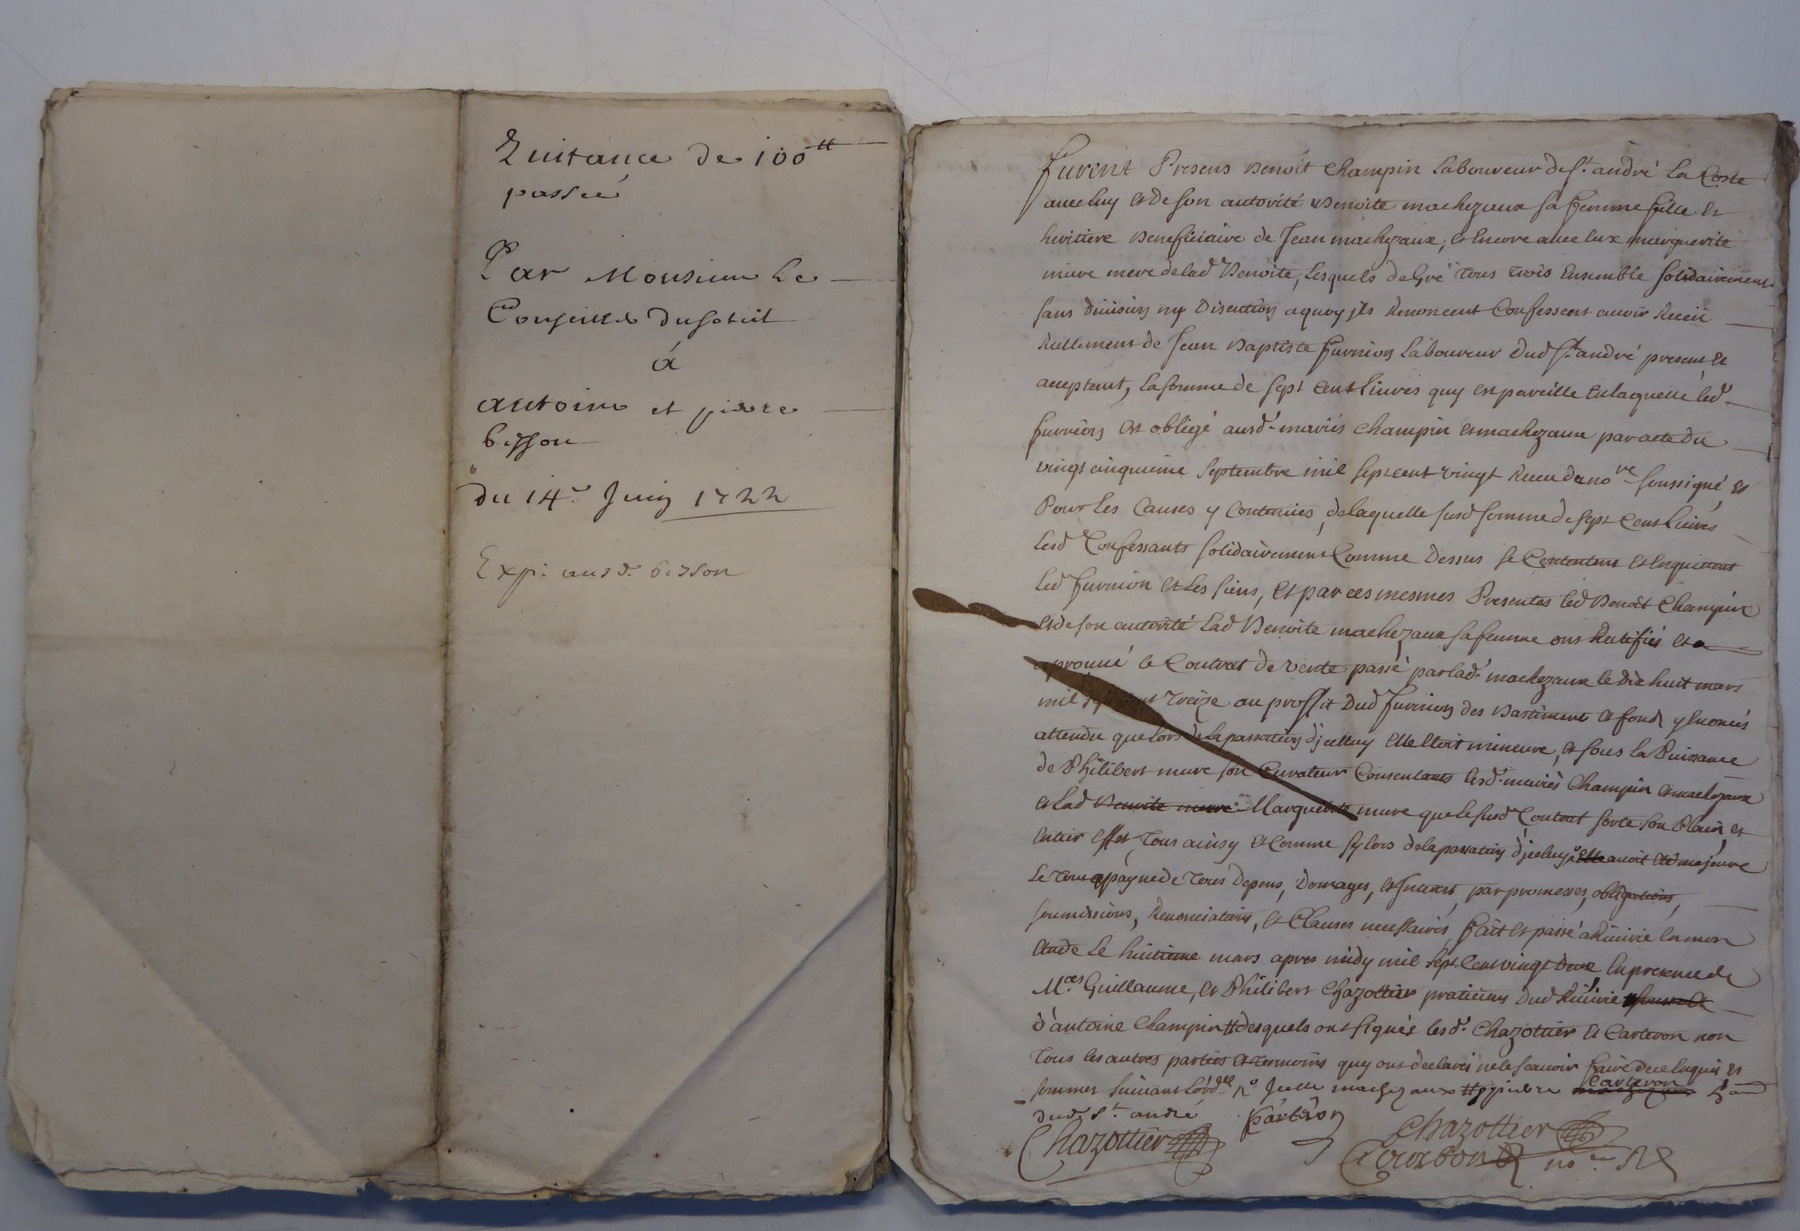 Quitance de 100ᵗᵗ
passée
Par Monsieur Le
Conseiller Dusoleil
à
antoine et pierre
bisson
du 14ᵉ Juin 1722
Exp: ausd. bisson
furent Presens Benoit Champin Laboureur de Sᵗ. andré La Coste
avec luy et de son autorité Benoite machezaux sa femme fille et
heritiere Beneficiaire de Jean machezaux, et encore avec eux marguerite
mure mere de lad Benoite, Lesquels de Gré tous trois Ensemble solidairement
sans division ny Discution aquoy jls Renoncent Confessent avoir Receü
Reellement de Jean Baptiste furnion Laboureur dud Sᵗ andré present et
acceptant, la somme de sept cent livres quy est pareille en laquelle led
furnion est obligé ausd. mariés Champin et machezaux par acte du
vingt cinquieme septembre mil sept cent vingt Receu de noʳᵉ soussigné, et
Pour les Causes y Contenües, de laquelle susd somme de sept Cent livres
lesd Confessants solidairement Comme dessus se Contentent et en quittent
led furnion et les siens, et par ces mesmes Presentes led Benoit Champin
et de son autorité Lad Benoite machezaux sa femme ont Ratifiés et a
prouvé le Contrat de vente passé par lad. machezaux le dix huit mars
mil sept cent treize au proffit dud furnion des Bastiment et fonds y Enoncés
attendu que lors de la passation d'jcelluy elle Etoit mineure, et sous la Puissance
de Philibert mure son Curateur Consentants lesd. mariés Champin et machezaux
et lad Benoite mure Marguerite mure que le susd Contrat sorte son Plain et
entier effet, tous ainsy et Comme sy lors de la passation d'jceluy elle avoit eté majeure
Le tout a payne de tous depens, Domages, et Interest, par promesses, obligations,
soumissions, Renonciations, et Clauses necessaires, fait et passé a Riuirie en mon
etude Le huitieme mars apres midy mil sept Cent vingt deux En presence de
Mᶜᵉˢ Guillaume, et Philibert Chazottier praticiens dud Riuirie
d'antoine Champin desquels ont signés lesd. Chazottier et Carteron non
tous les autres parties et temoins quy ont declarés ne le scavoir faire de ce Enquis et
sommes suivant
Carteron
dud. Sᵗ. andré Carteron
Chazottier
Chazottier